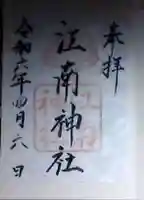 奉拝
江南神社
令和六年四月六日